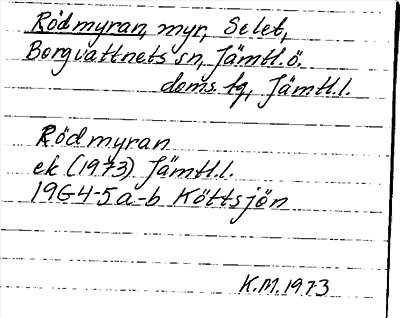 Rödmyran, myr, Selet,
Borgvattnets sn, Jämtl. ö.
doms. tg, Jämtl. l.
Rödmyran
ek (1973) Jämtl. l.
19G4-5a-b Köttsjön
K.M. 1973